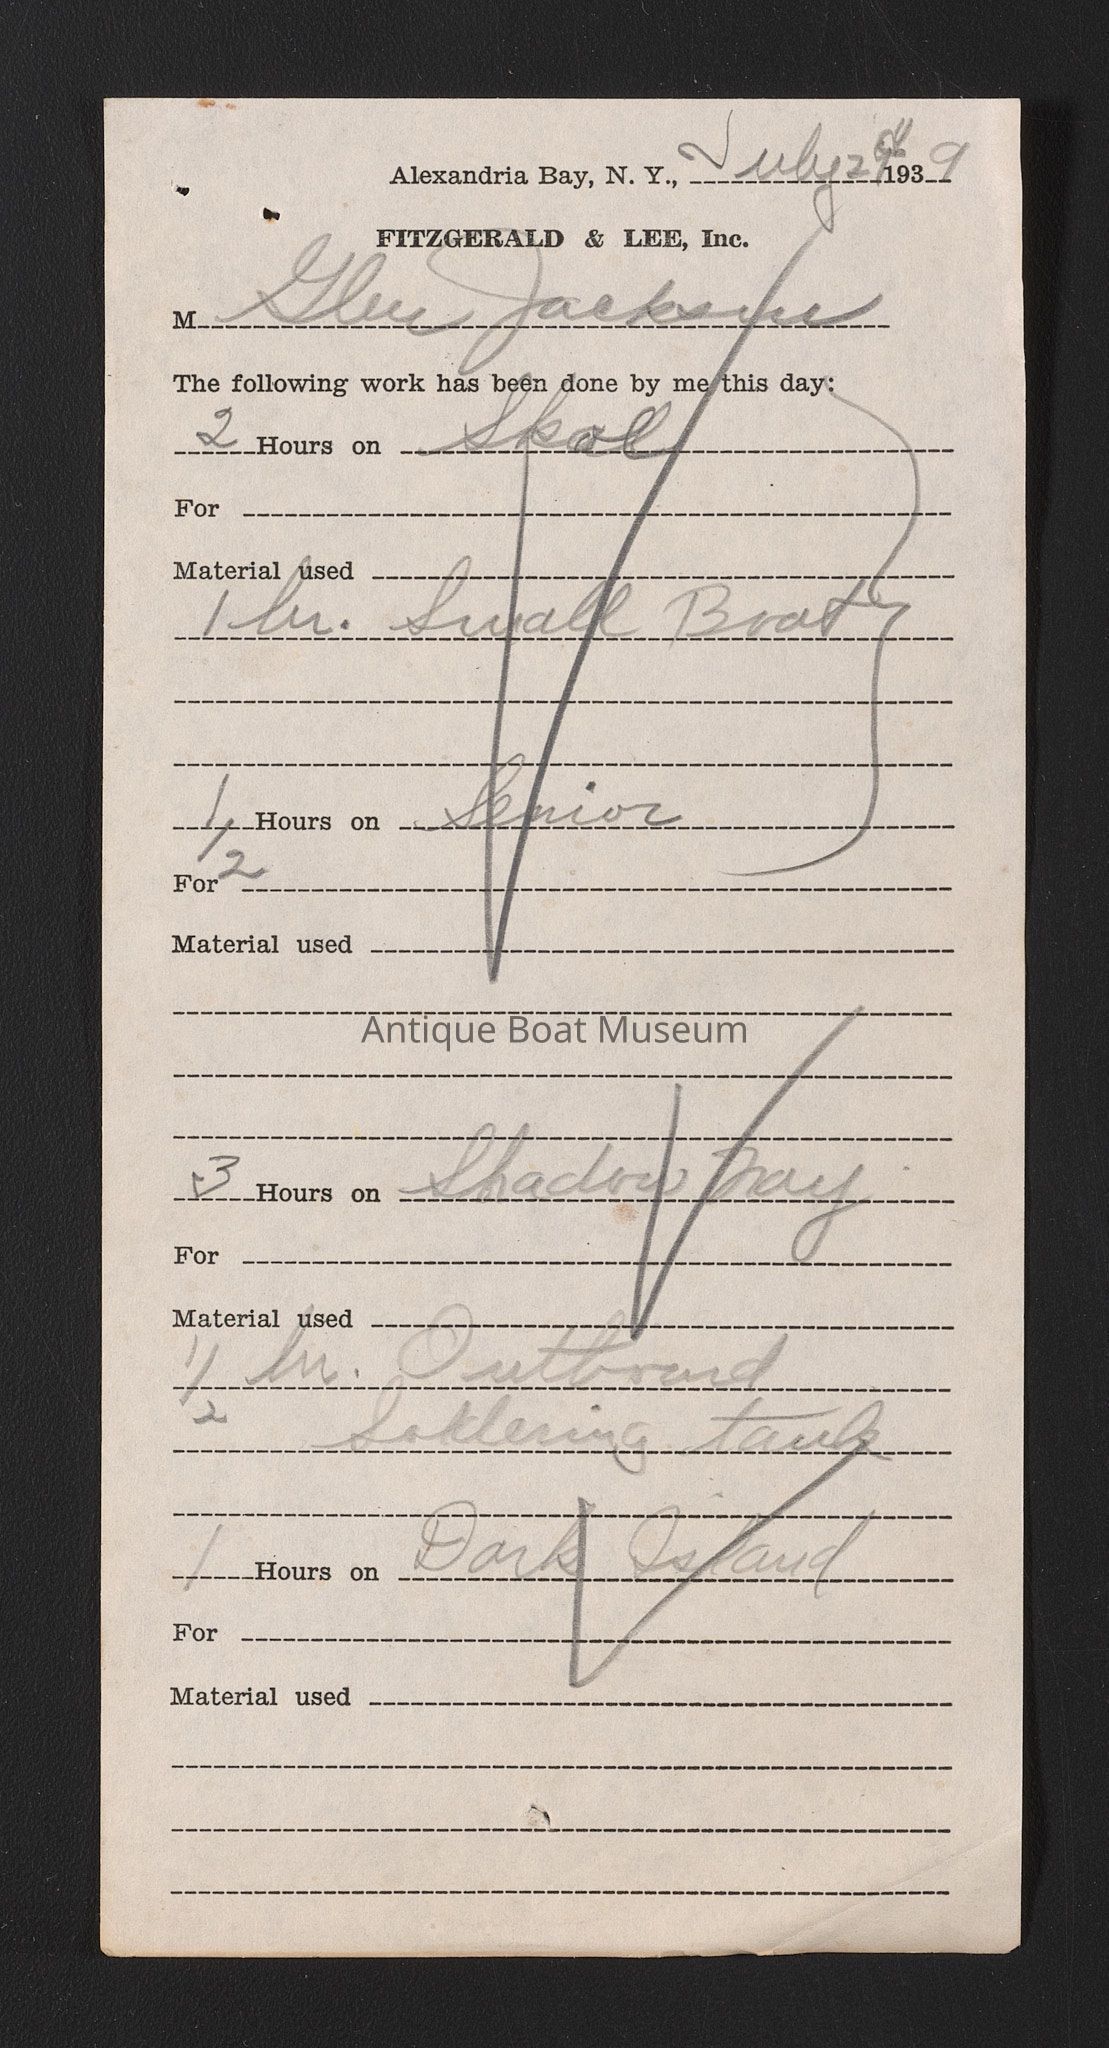 Alexandria Bay, N. Y., July 2 1939
FITZGERALD & LEE, Inc.
M Glen Jackson
The following work has been done by me this day:
2 Hours on Skol
For
Material used
1 hr. Small Boat
1/2 Hours on Senior
For
Material used
Antique Boat Museum
3 Hours on Shadow May
For
Material used
1/2 hr. Outboard
Soldering tank
1 Hours on Dark Island
For
Material used